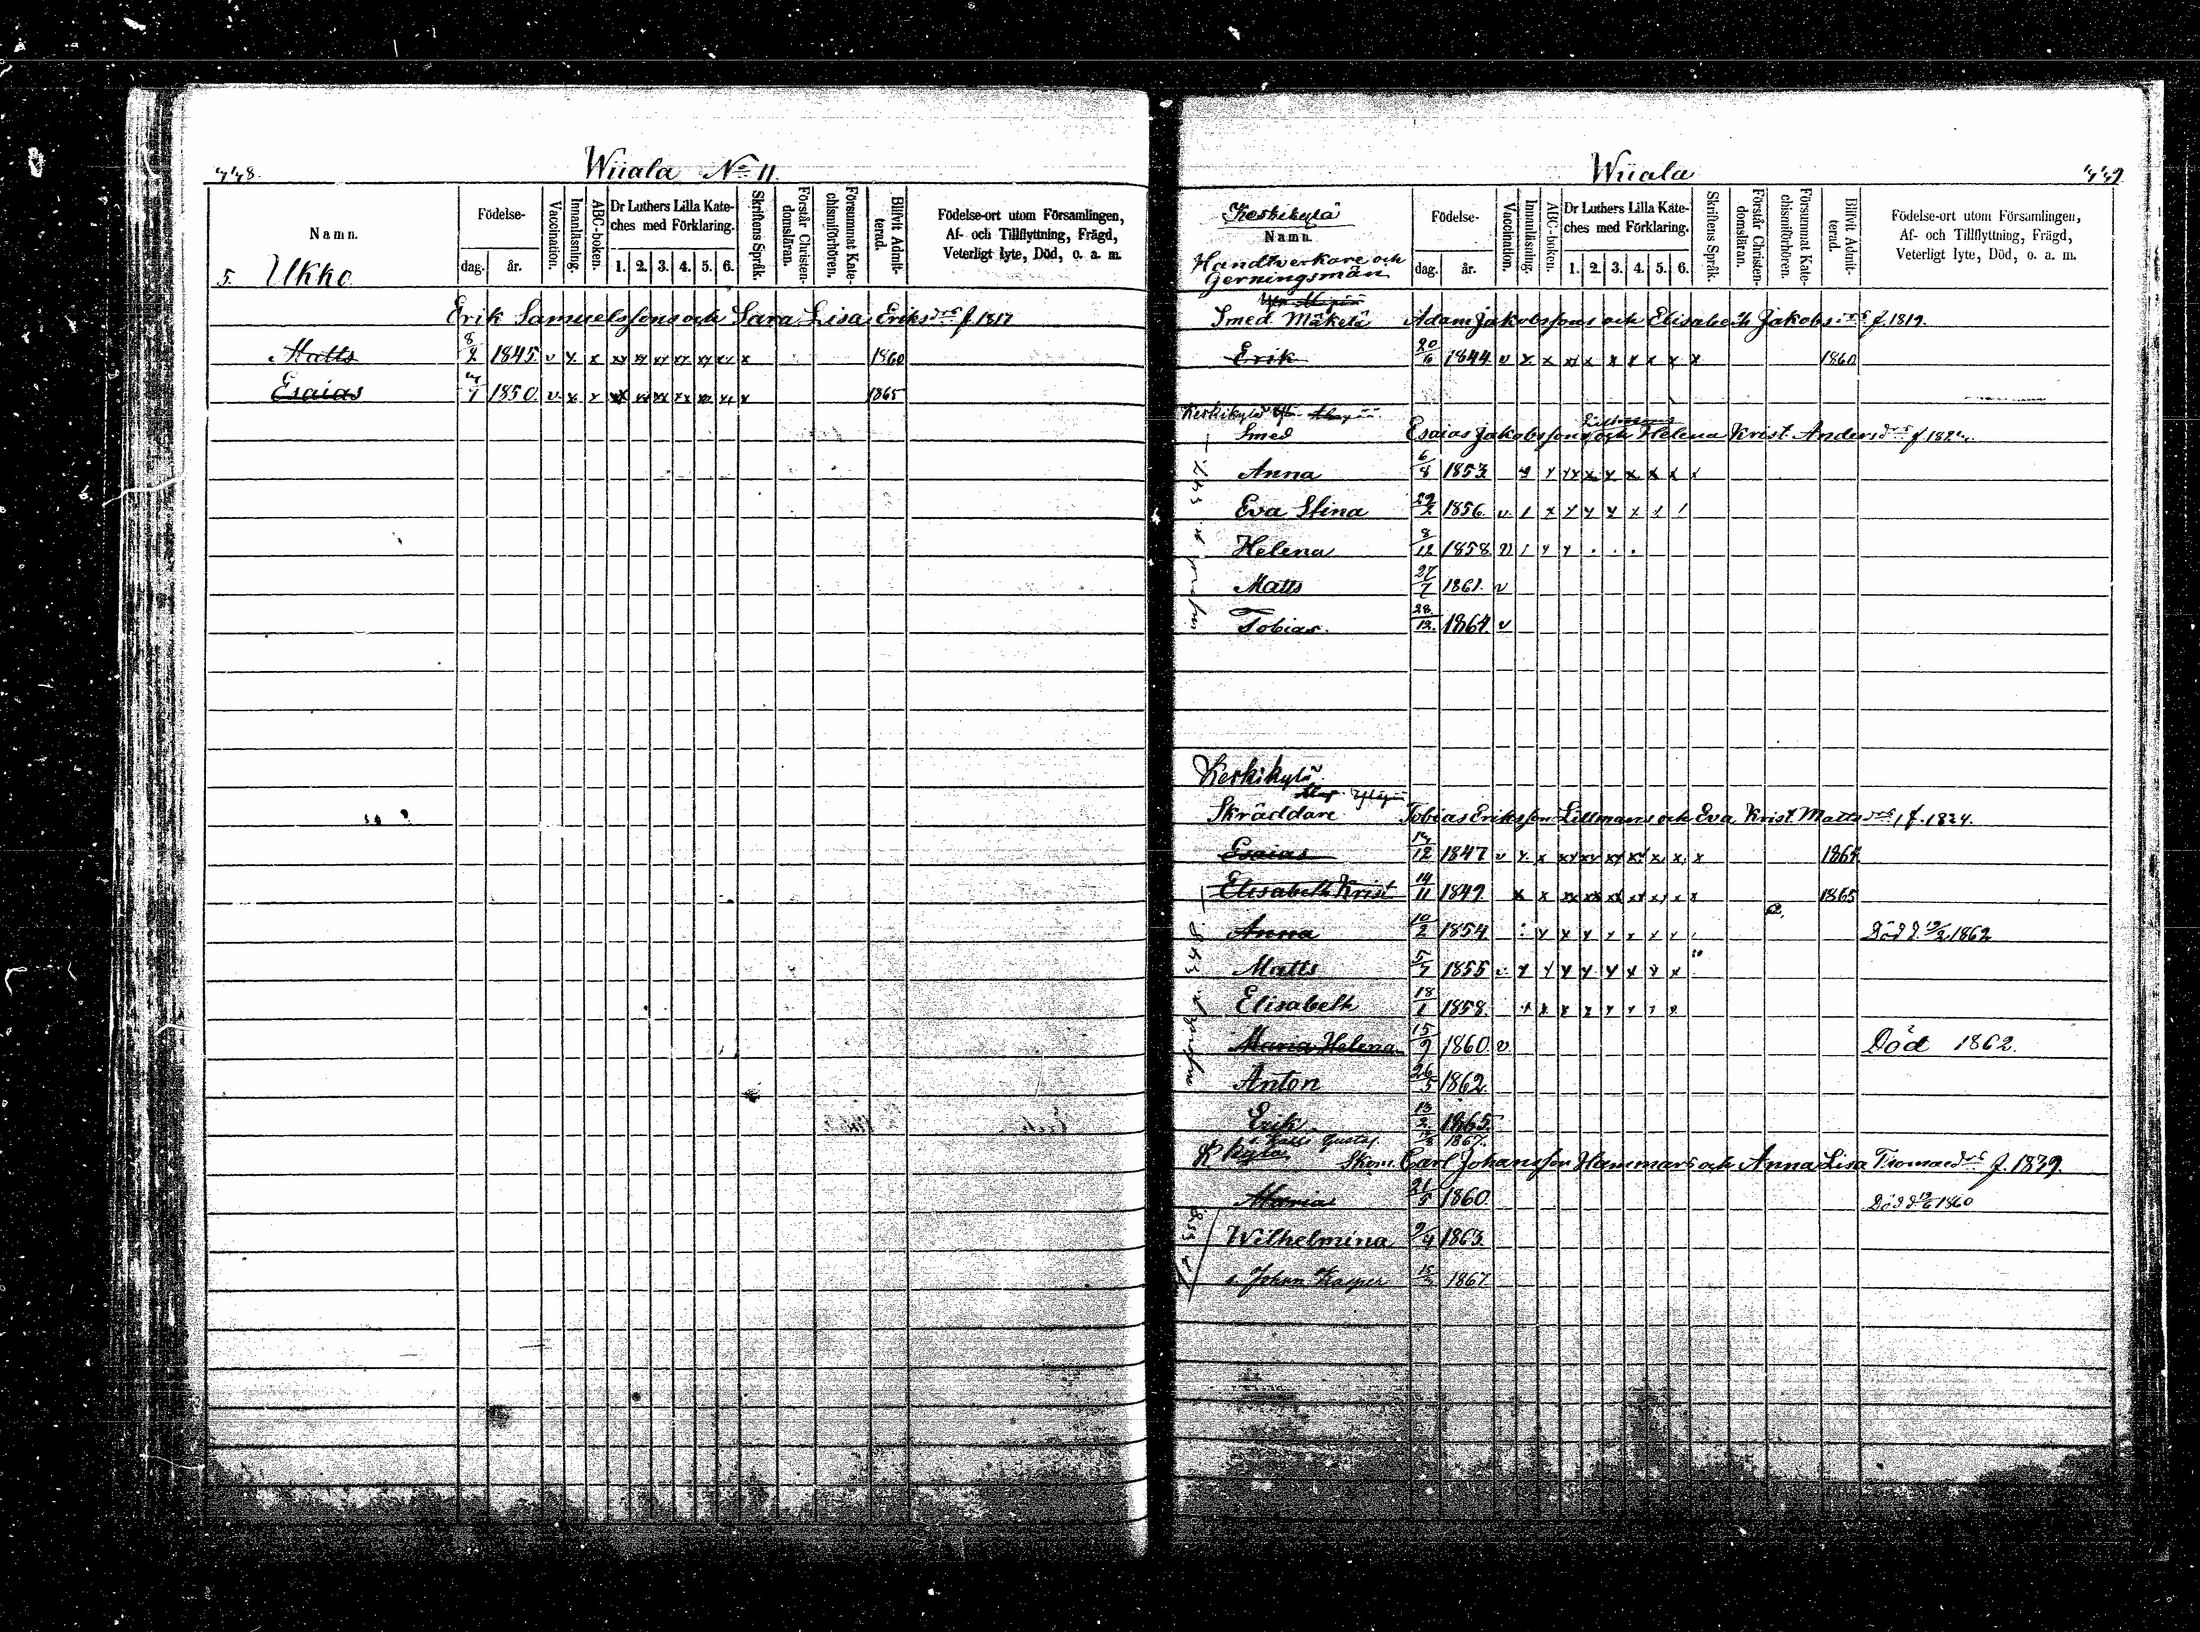 448.
Wiiala No 11.
Namn.
Födelse-
dag.
år.
Vaccination.
Innanläsning.
ABC-boken.
Dr Luthers Lilla Kate-
ches med Förklaring.
1. 2. 3. 4. 5. 6.
Skriftens Språk.
Förstår Christen-
domsläran.
Försummat Kate-
chismiförhören.
Blifvit Admit-
terad.
Födelse-ort utom Församlingen,
Af- och Tillflyttning, Frägd,
Veterligt lyte, Död, o. a. m.
5. Ukko
Erik Samuelssons och Sara Lisa Eriksdrs f. 1817
Matts 8/2 1845. v x x xx xx xx xx xx xx x 1860
Esaias 1850. v x x xx xx xx xx x 1865
Wiiala
449
Keskikylä
Namn.
Handtverkare och
Gerningsmän
Födelse-
dag.
år.
Vaccination.
Innanläsning.
ABC-boken.
Dr Luthers Lilla Kate-
ches med Förklaring.
1. 2. 3. 4. 5. 6.
Skriftens Språk.
Förstår Christen-
domsläran.
Försummat Kate-
chismiförhören.
Blifvit Admit-
terad.
Födelse-ort utom Församlingen,
Af- och Tillflyttning, Frägd,
Veterligt lyte, Död, o. a. m.
Smed Mäkelä Adam Jakobssons och Elisabeth Jakobsdrs f. 1819.
Erik 20/6 1844 v x x xx x x x x x x 1860
Keskikylä
Smed Esaias Jakobssons och Helena Krist. Andersdrs
Anna 6/8 1853
Eva Stina 29/2 1856. v
Helena 8/12 1858 v
Matts 27/7 1861. v
Tobias. 28/12. 1864. v
Keskikylä
Skräddare Tobias Eriksson Lillmans och Eva Krist Mattsdrs f. 1824.
Esaias 1847 v x x xx xx xx xx x x x 1864
Elisabeth Krist 14/11 1849 x x 1865
Anna 10/2 1854 62. Död d. 1862
Matts 5/7 1855
Elisabeth 18/1 1858.
Maria Helena 15/9 1860. v Död 1862.
Anton 26/5 1862
Erik 13/2 1865.
Gustaf 1867.
K kylä Skom. Carl Johansson Hammars och Anna Lisa Thomasdrs f. 1839.
Maria 21/5 1860. Död d 1860
Wilhelmina 2/4 1863.
Johan Kasper 1867